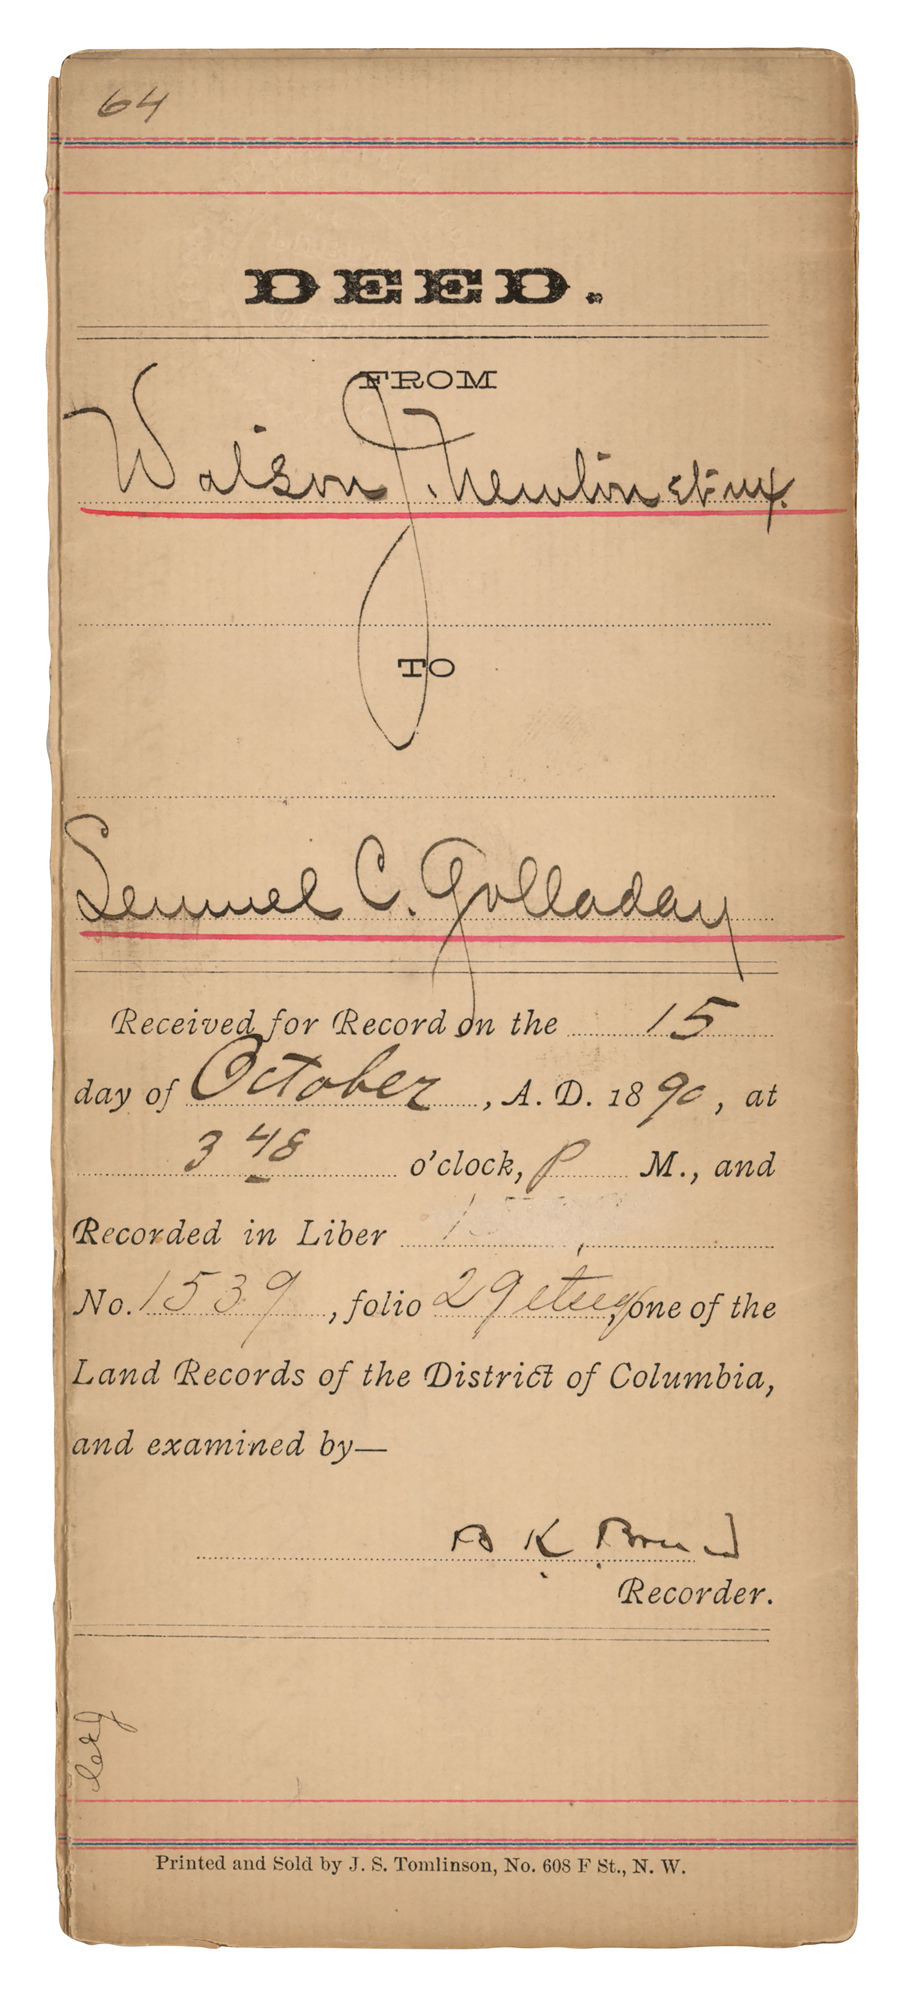 64
DEED.
FROM
Watson J. Newlin et ux.
TO
Lemuel C. Golladay
Received for Record on the 15
day of October, A. D. 1890, at
3 48 o'clock, P M., and
Recorded in Liber
No. 1539, folio 29 et seq, one of the
Land Records of the District of Columbia,
and examined by—
B K Bruce
Recorder.
Printed and Sold by J. S. Tomlinson, No. 608 F St., N. W.